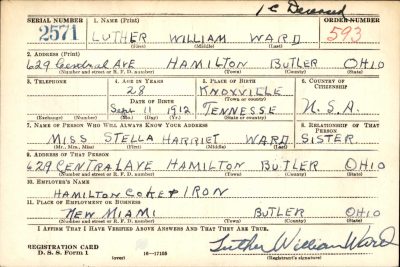 1 C Deceased
SERIAL NUMBER 1. NAME (Print) ORDER NUMBER
2571 LUTHER WILLIAM WARD 593
(First) (Middle) (Last)
2. ADDRESS (Print)
629 Central AVE HAMILTON BUTLER OHIO
(Number and street or R. F. D. number) (Town) (County) (State)
3. TELEPHONE 4. AGE IN YEARS 5. PLACE OF BIRTH 6. COUNTRY OF CITIZENSHIP
28 KNOXVILLE
DATE OF BIRTH (Town or county)
Sept 11 1912 TENNESSE U.S.A.
(Exchange) (Number) (Mo.) (Day) (Yr.) (State or country)
7. NAME OF PERSON WHO WILL ALWAYS KNOW YOUR ADDRESS 8. RELATIONSHIP OF THAT PERSON
MISS STELLA HARRIET WARD SISTER
(Mr., Mrs., Miss) (First) (Middle) (Last)
9. ADDRESS OF THAT PERSON
629 CENTRAL AVE HAMILTON BUTLER OHIO
(Number and street or R. F. D. number) (Town) (County) (State)
10. EMPLOYER'S NAME
HAMILTON COKE & IRON
11. PLACE OF EMPLOYMENT OR BUSINESS
NEW MIAMI BUTLER OHIO
(Number and street or R. F. D. number) (Town) (County) (State)
I AFFIRM THAT I HAVE VERIFIED ABOVE ANSWERS AND THAT THEY ARE TRUE.
REGISTRATION CARD
D. S. S. Form 1 (over) 16—17105 Luther William Ward
(Registrant's signature)